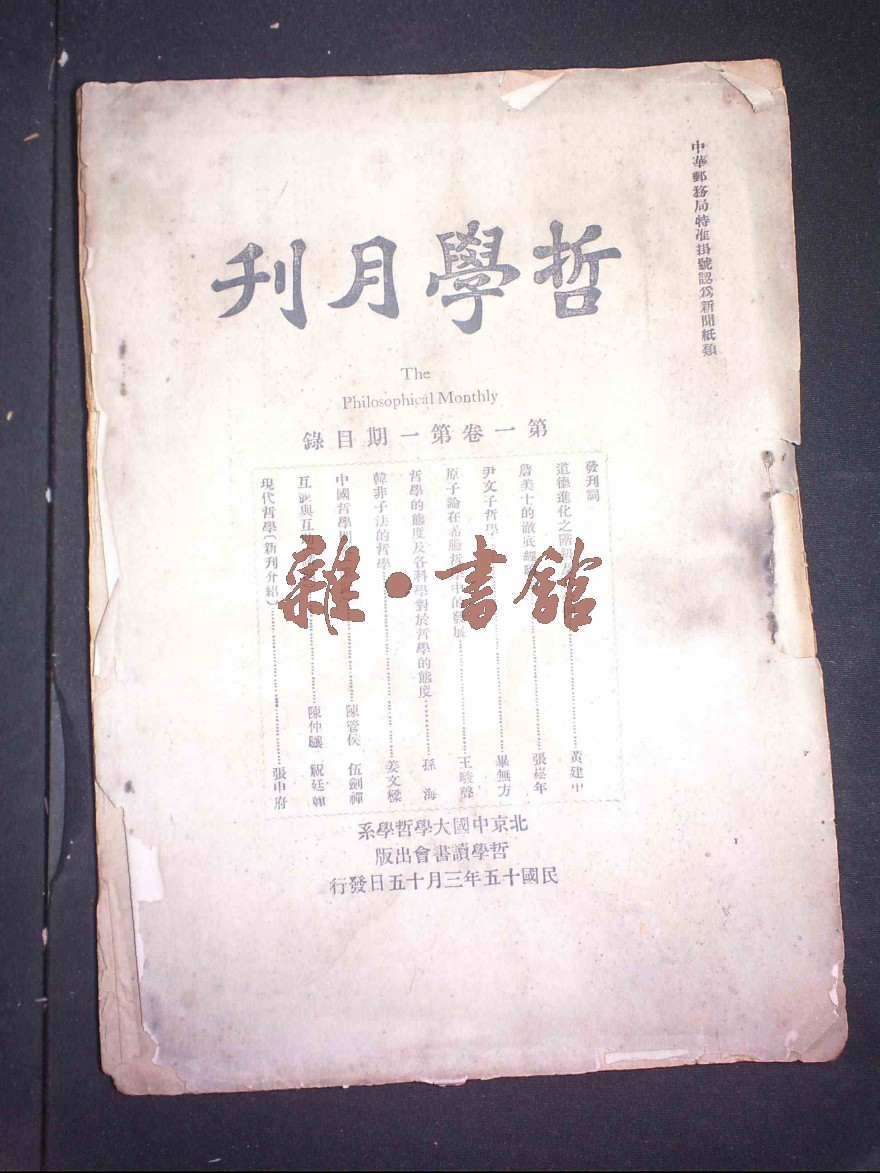 中華郵務局特准掛號認爲新聞紙類
哲學月刊
The
Philosophical Monthly
第一卷第一期目錄
發刊詞
道德進化之階級 黃建中
詹美士的澈底經 張崧年
尹文子哲學 畢無方
原子論在希臘哲學中的發展 王駿聲
哲學的態度及各科學對於哲學的態度 孫海
韓非子法的哲學 姜文樑
中國哲學 陳管侯 伍劍禪
互 與互 陳仲驤 祝廷
現代哲學〔新刊介紹〕 張申府
雜·書館
北京中國大學哲學系
哲學讀書會出版
民國十五年三月十五日發行